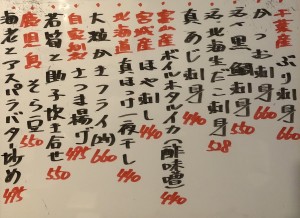 千葉産 ぶり刺身 660
かつお刺身 550
石黒鯛刺身 660
北海生だこ刺身 528
富山産 ボイルホタルイカ(酢味噌) 440
宮城産 ほや刺し 440
北海道 真ほっけ一夜干し 440
大粒かきフライ(4ヶ) 660
自家製 さつま揚げ 495
若筍と助子炊き合せ 550
鹿児島 そら豆 550
海老とアスパラバター炒め 495